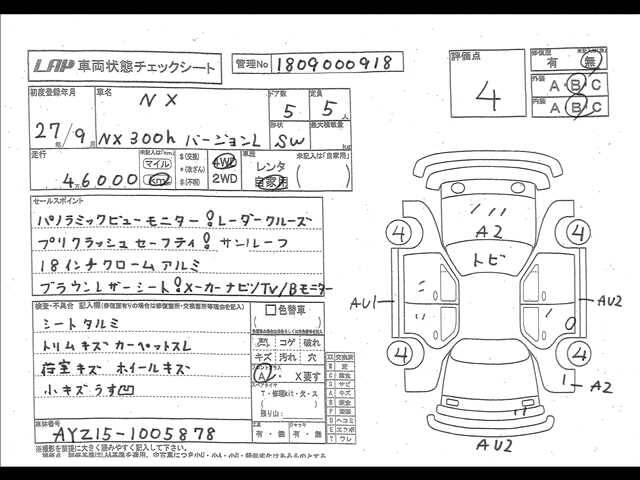 LAP 車両状態チェックシート
管理No 1809000918
評価点
4
修復歴
有 無
外装
A・B・C
内装
A・B・C
初度登録年月
27年/9月
車名
NX
NX300h バージョンL
ドア数
5
定員
5人
形状
SW
最大積載量
kg
走行
46000
マイル
Km
$(交換)
*(改ざん)
#(不明)
4WD
2WD
車歴
未記入は「自家用」
レンタ
自家用
セールスポイント
パノラミックビューモニター！レーダークルーズ
プリクラッシュセーフティ！サンルーフ
18インチクロームアルミ
ブラウンレザーシート！メーカーナビ/TV/Bモニター
検査・不具合 記入欄
シートタルミ
トリムキズ カーペットスレ
荷室キズ ホイールキズ
小キズうす凹
色替車
コゲ 破れ
キズ 汚れ 穴
フロントガラス
A・X要す
スペアタイヤ
T・修理kit・欠・ス
残り山
工具
有・無
ジャッキ
有・無
車体番号
AYZ15-1005878
A2
トビ
4
4
4
4
AU1
AU2
A2
AU2